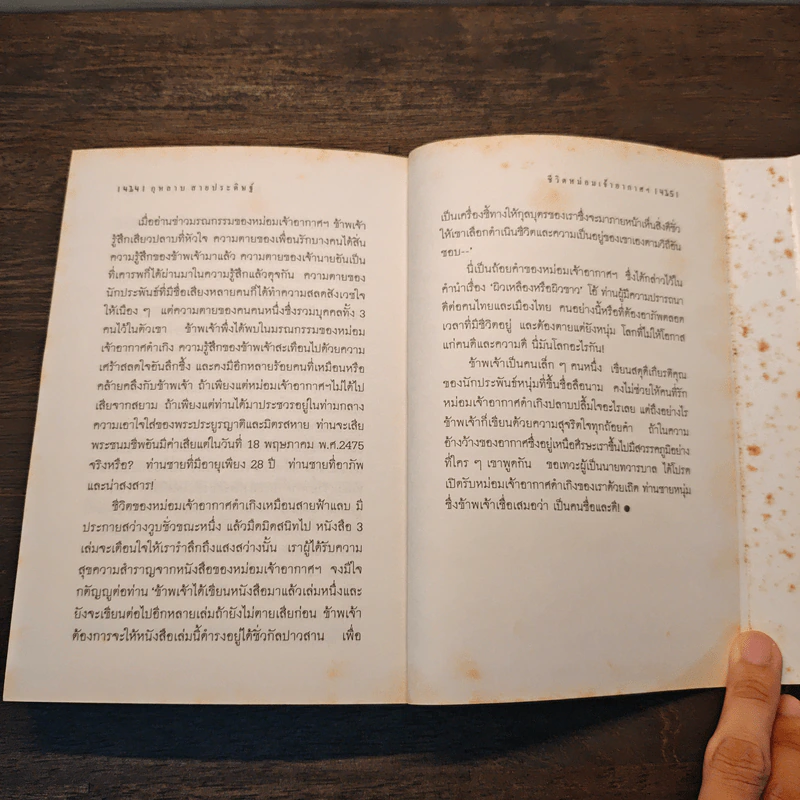 |๔๒๔| กุหลาบ สายประดิษฐ์
เมื่ออ่านข่าวมรณกรรมของหม่อมเจ้าอากาศฯ ข้าพเจ้า
รู้สึกเสียวปลาบที่หัวใจ ความตายของเพื่อนรักบางคนได้สั่น
ความรู้สึกของข้าพเจ้ามาแล้ว ความตายของเจ้านายอันเป็น
ที่เคารพก็ได้ผ่านมาในความรู้สึกแล้วดุจกัน ความตายของ
นักประพันธ์ที่มีชื่อเสียงหลายคนก็ได้ทำความสลดสังเวชใจ
ให้เนือง ๆ แต่ความตายของคนคนหนึ่งซึ่งรวมบุคคลทั้ง 3
คนไว้ในตัวเขา ข้าพเจ้าพึ่งได้พบในมรณกรรมของหม่อม
เจ้าอากาศดำเกิง ความรู้สึกของข้าพเจ้าสะเทือนไปด้วยความ
เศร้าสลดใจอันลึกซึ้ง และคงมีอีกหลายร้อยคนที่เหมือนหรือ
คล้ายคลึงกับข้าพเจ้า ถ้าเพียงแต่หม่อมเจ้าอากาศฯไม่ได้ไป
เสียจากสยาม ถ้าเพียงแต่ท่านได้มาประชวรอยู่ในท่ามกลาง
ความเอาใจใส่ของพระประยูรญาติและมิตรสหาย ท่านจะเสีย
พระชนมชีพอันมีค่าเสียแต่ในวันที่ 18 พฤษภาคม พ.ศ.2475
จริงหรือ? ท่านชายที่มีอายุเพียง 28 ปี ท่านชายที่อาภัพ
และน่าสงสาร!
ชีวิตของหม่อมเจ้าอากาศดำเกิงเหมือนสายฟ้าแลบ มี
ประกายสว่างวูบชั่วขณะหนึ่ง แล้วมืดมิดสนิทไป หนังสือ 3
เล่มจะเตือนใจให้เรารำลึกถึงแสงสว่างนั้น เราผู้ได้รับความ
สุขความสำราญจากหนังสือของหม่อมเจ้าอากาศฯ จงมีใจ
กตัญญูต่อท่าน 'ข้าพเจ้าได้เขียนหนังสือมาแล้วเล่มหนึ่งและ
ยังจะเขียนต่อไปอีกหลายเล่มถ้ายังไม่ตายเสียก่อน ข้าพเจ้า
ต้องการจะให้หนังสือเล่มนี้ดำรงอยู่ได้ชั่วกัลปาวสาน เพื่อ
ชีวิตหม่อมเจ้าอากาศฯ |๔๒๕|
เป็นเครื่องชี้ทางให้กุลบุตรของเราซึ่งจะมาภายหน้าเห็นสิ่งดีชั่ว
ให้เขาเลือกดำเนินชีวิตและความเป็นอยู่ของเขาเองตามวิถีอัน
ชอบ--'
นี่เป็นถ้อยคำของหม่อมเจ้าอากาศฯ ซึ่งได้กล่าวไว้ใน
คำนำเรื่อง 'ผิวเหลืองหรือผิวขาว' โอ้ ท่านผู้มีความปรารถนา
ดีต่อคนไทยและเมืองไทย คนอย่างนี้หรือที่ต้องอาภัพตลอด
เวลาที่มีชีวิตอยู่ และต้องตายแต่ยังหนุ่ม โลกที่ไม่ให้โอกาส
แก่คนดีและความดี นี่มันโลกอะไรกัน!
ข้าพเจ้าเป็นคนเล็ก ๆ คนหนึ่ง เขียนสดุดีเกียรติคุณ
ของนักประพันธ์หนุ่มที่ขึ้นชื่อลือนาม คงไม่ช่วยให้คนที่รัก
หม่อมเจ้าอากาศดำเกิงปลาบปลื้มใจอะไรเลย แต่ถึงอย่างไร
ข้าพเจ้าก็เขียนด้วยความสุจริตใจทุกถ้อยคำ ถ้าในความ
อ้างว้างของอากาศซึ่งอยู่เหนือศีรษะเราขึ้นไปมีสวรรคภูมิอย่าง
ที่ใคร ๆ เขาพูดกัน ขอเทวะผู้เป็นนายทวารบาล ได้โปรด
เปิดรับหม่อมเจ้าอากาศดำเกิงของเราด้วยเถิด ท่านชายหนุ่ม
ซึ่งข้าพเจ้าเชื่อเสมอว่า เป็นคนซื่อและดี! ●